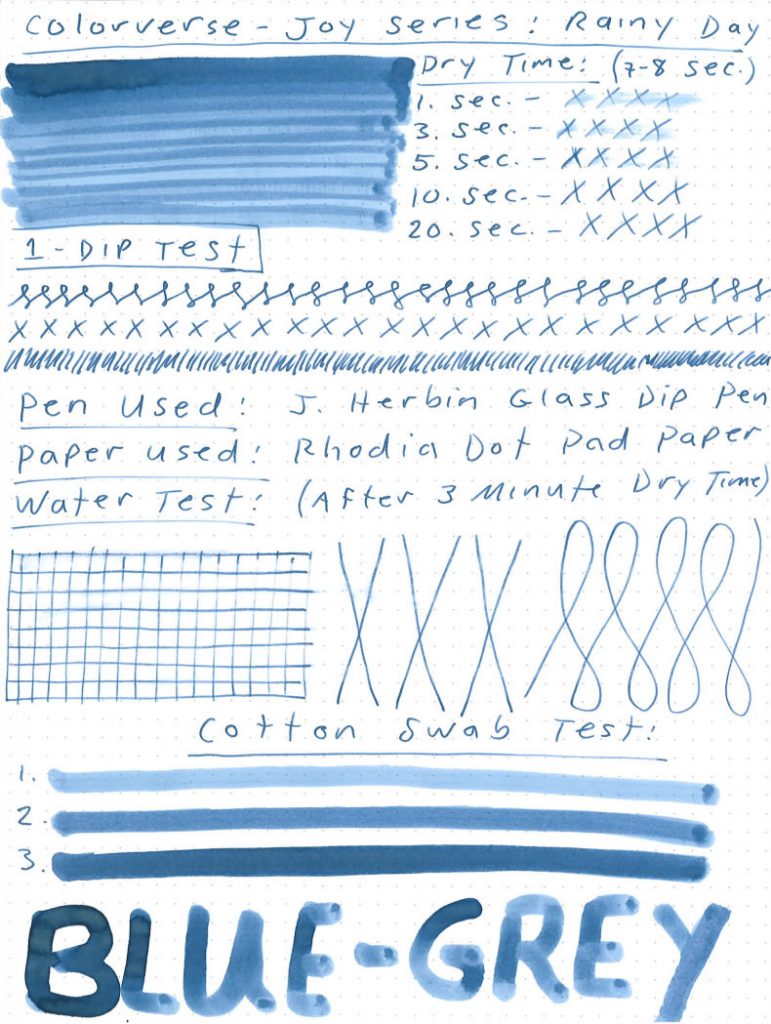 Colorverse - Joy Series: Rainy Day
Dry Time: (7-8 sec.)
1. sec. - x x x x
3. sec. - x x x x
5. sec. - x x x x
10. sec. - x x x x
20. sec. - x x x x
1 - Dip Test
x x x x x x x x x x x x x x x x x x x x x x x x
Pen Used: J. Herbin Glass Dip Pen
Paper used: Rhodia Dot Pad Paper
Water Test: (After 3 Minute Dry Time)
Cotton Swab Test:
1.
2.
3.
BLUE-GREY